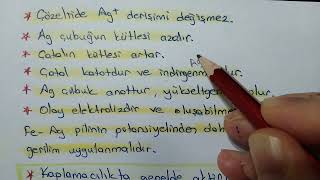 * Çözeltide Ag⁺ derişimi değişmez.
* Ag çubuğun kütlesi azalır.
* Çatalın kütlesi artar.
* Çatal katottur ve
* Ag çubuk anottur, yükseltgen
* Olay elektrolizdir ve oluşabilme
Fe-Ag pilinin potansiyelinden
gerilim uygulanmalıdır.
* Kaplamacılıkta genelde